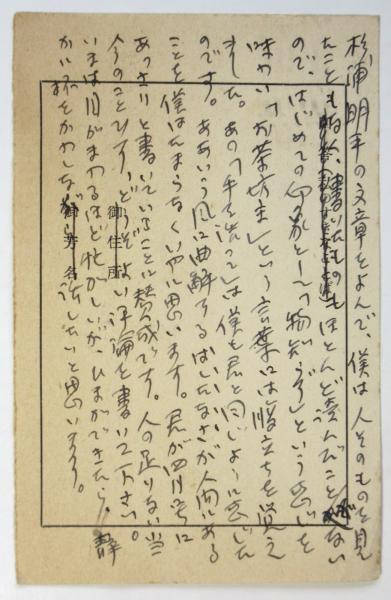 杉浦明平の文章をよんで、僕は人そのものを見
たことも始め、書いたものもほとんど読んだことがない
ので、はじめての印象として「物知らず」という感じを
味わい「お茶坊主」という言葉には腹立ちを覚え
ました。あの「手を洗って」は僕も君と同じように感じた
のです。ああいう風に曲解するはしたなさが人間にある
ことを僕はたまらなくいやに思います。君が四月号に
あっさりと書いていることに賛成です。人の足りない当
今のことです、どうぞよい評論を書いて下さい。
いまは目がまわるほど忙がしいが、ひまができたら、静
かに杯をかわしながら話したいと思います。
御住所
御芳名